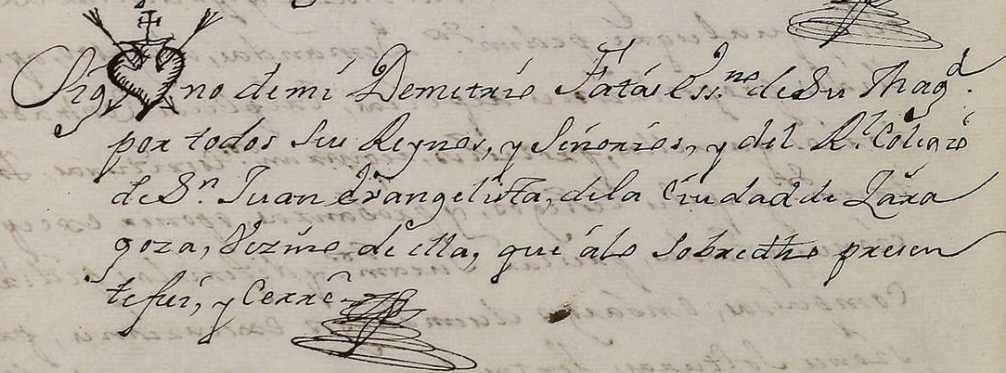 Sig no de mi Demetrio Fatás Ess.no de Su Mag.d
por todos sus Reynos, y Señorios, y del R.l Colegio
de S.n Juan Evangelista, de la Ciudad de Zara
goza, Vezino de ella, que á lo sobredho presen
te fui, y Cerré